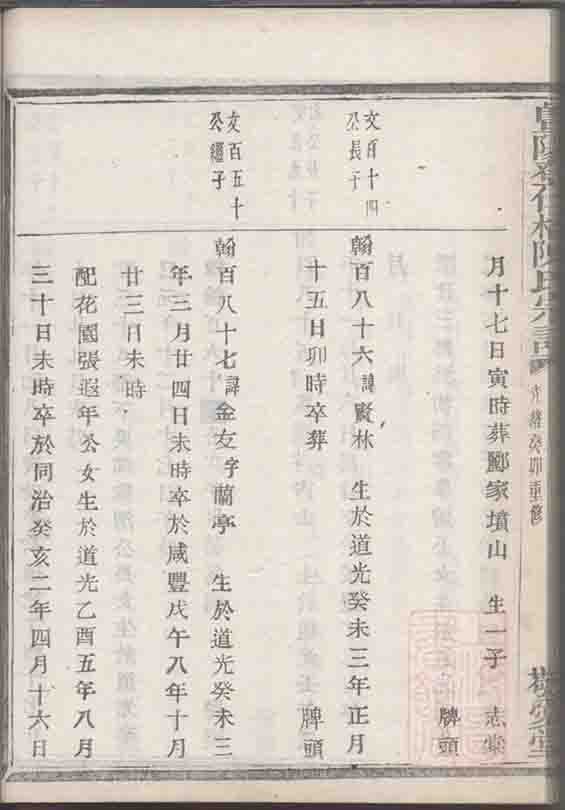 暨陽 陳氏宗譜 光緒癸卯重修
月十七日寅時葬酈家墳山 生一子 志棠
牌頭
文百十四
公長子
翰百八十六諱賢林 生於道光癸未三年正月
十五日卯時卒葬 牌頭
文百五十
公繼子
翰百八十七諱金友字蘭亭 生於道光癸未三
年三月廿四日未時卒於咸豐戊午八年十月
廿三日未時
配花園張遐年公女生於道光乙酉五年八月
三十日未時卒於同治癸亥二年四月十六日